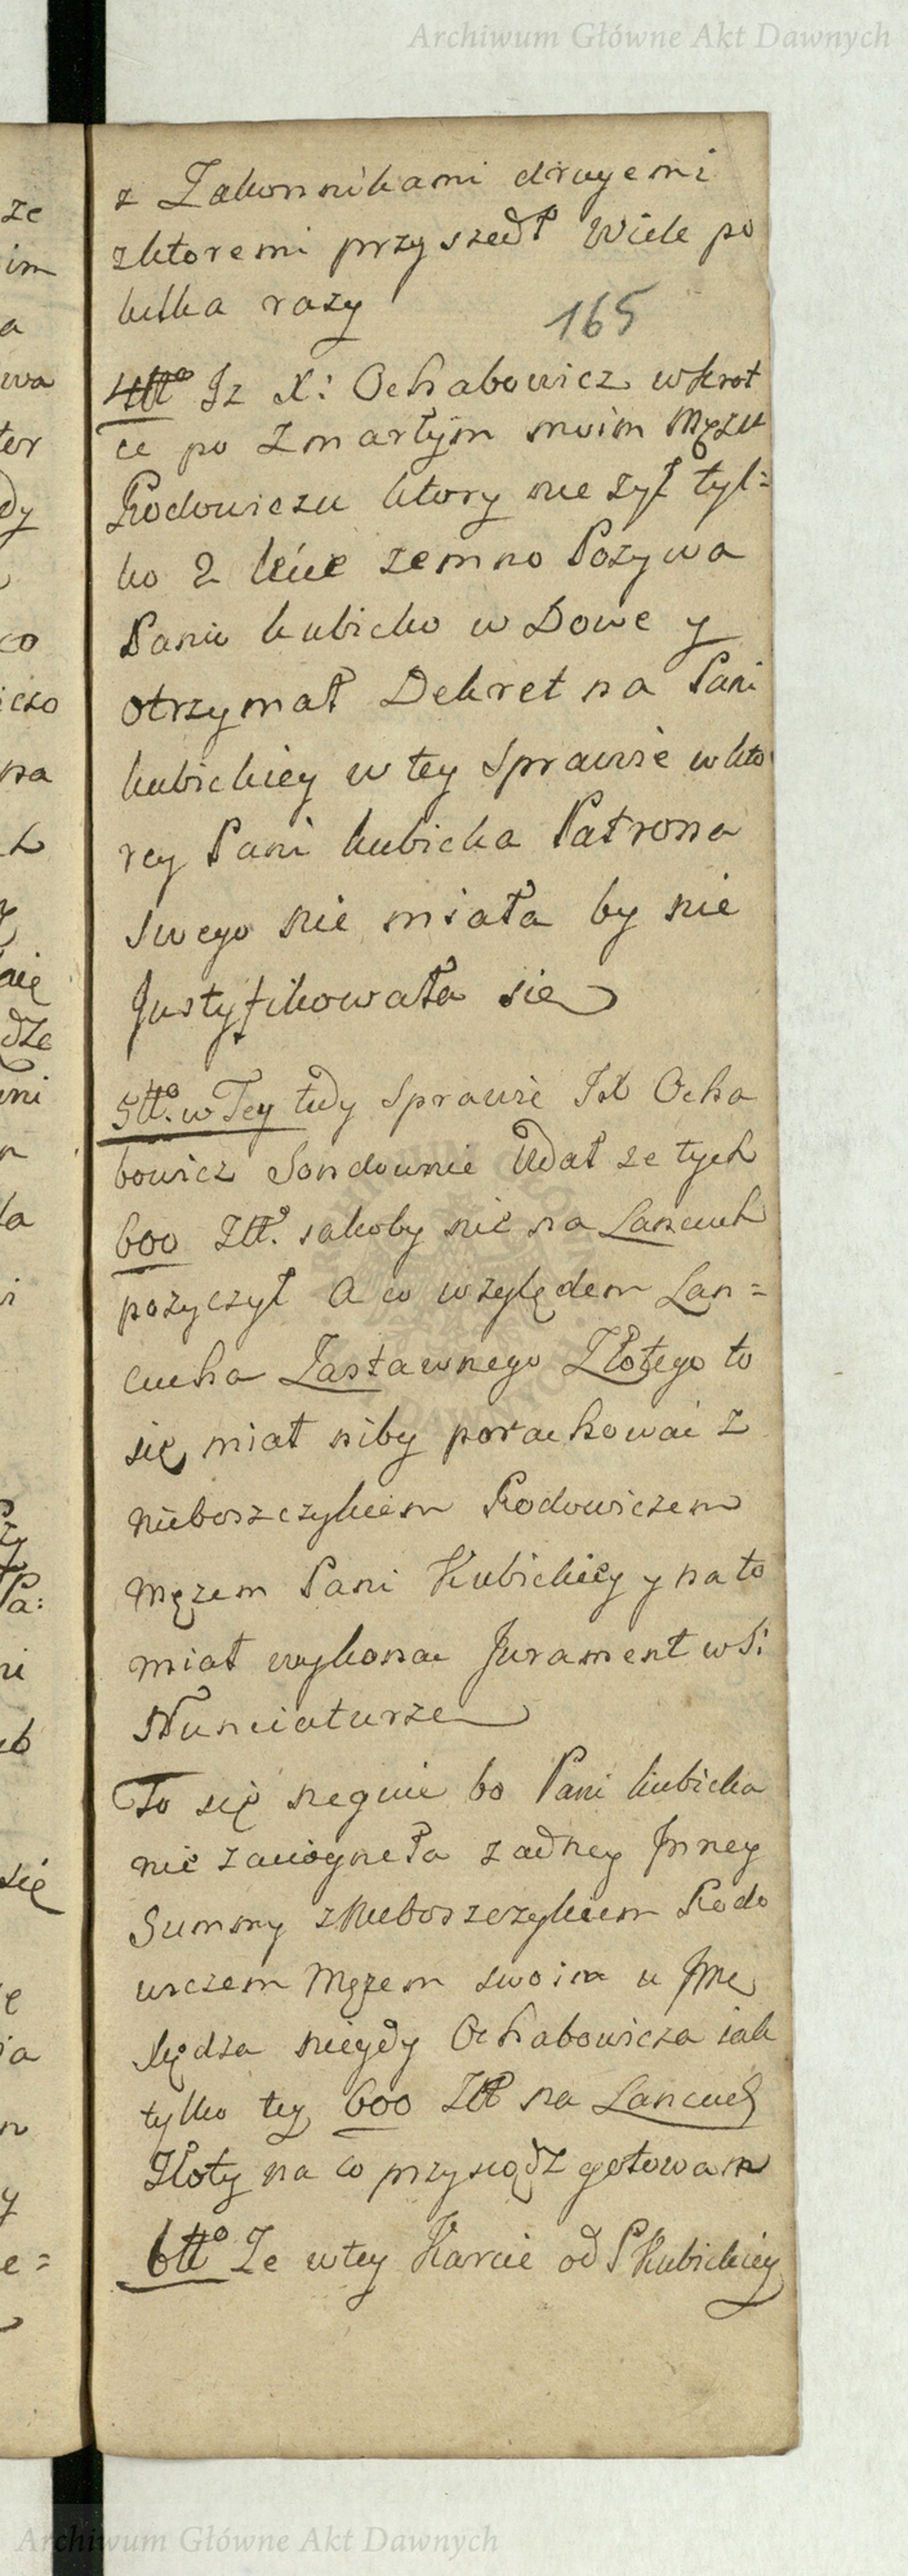 Archiwum Główne Akt Dawnych
z Zakonnikami drugiemi
zktoremi przyszedł Wiele po
kilka razy
165
4tto Iz X: Ochabowicz wkrot
ce po Zmarłym moim Męzu
Rodowiczu ktory nie zył tyl=
ko 2 lecie zemno Pozywa
Panio kubicko w Dowe y
otrzymał Dekret na Pani
kubickiey w tey Sprawie wkto
rey Pani kubicka Patrona
swego nie miała by nie
Justyfikowała sie
5tto. w Tey tedy Sprawie IX Ocha
bowicz Sondownie Udał ze tych
600 Złł. jakoby nie na Lancuch
pozyczył A co względem Lan=
cucha Zastawnego Złotego to
się miał niby porachować z
nieboszczykiem Rodowiczem
Męzem Pani Kubickiey y na to
miał wykonac Jurament w S:
Nunciaturze
To się neguie bo Pani kubicka
nie zaciogneła zadney Inney
Summy zNieboszczykiem Rodo
wiczem Męzem swoim u Jme
Kędza niegdy Ochabowicza iak
tylko tey 600 Złł na Lancuch
Złoty na co przysiądz gotowam
6tto Ze wtey Karcie od P Kubickiey
ze
im
a
wa
tor
dy
co
iczo
na
aię
dze
mni
la
Pa:
ni
się
ia
y
e=
Archiwum Główne Akt Dawnych